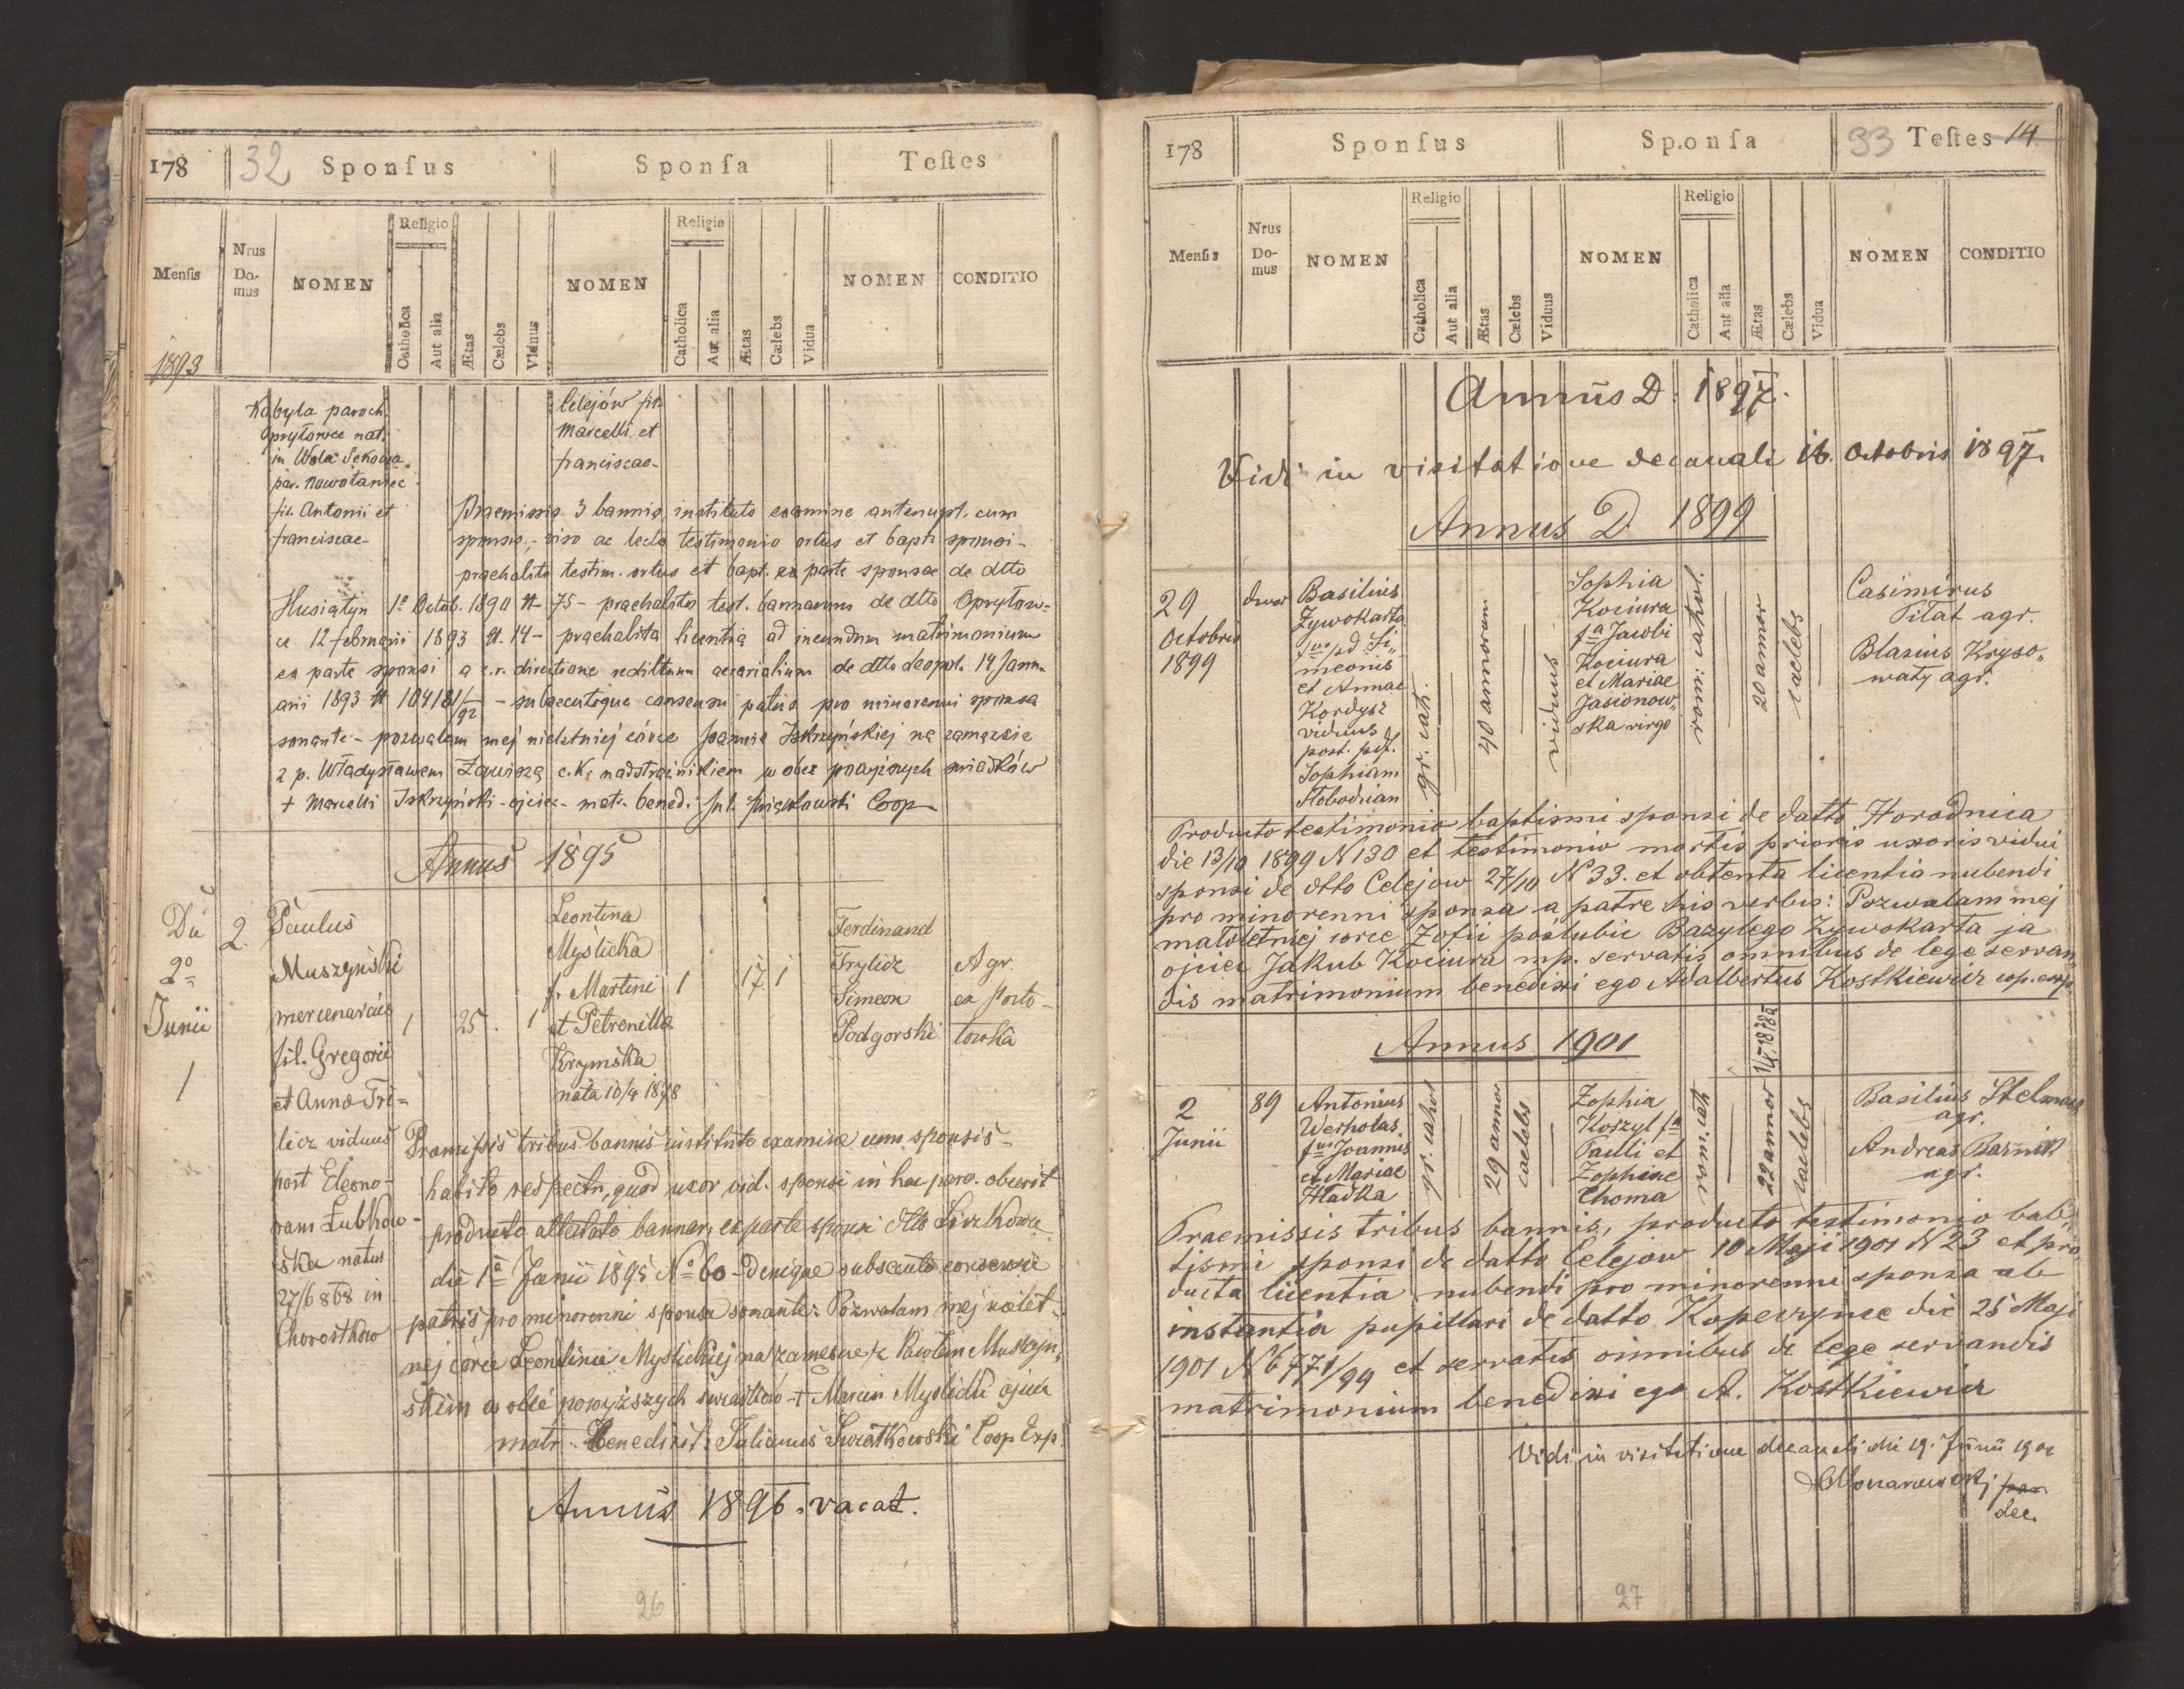 178 32 Sponſus Sponſa Teſtes
Menſis Nrus Do-mus NOMEN Religio Catholica Aut alia Ætas Cælebs Viduus NOMEN Religio Catholica Aut alia Ætas Cælebs Vidua NOMEN CONDITIO
1893
Kobyla paroch.
nat.
in Wola Sekowa
par. Nowotaniec
fil. Antonii et
franciscae-
Celejów fil.
Marcelli et
franciscae-
Praemissis 3 bannis instituto examine antenupt. cum
sponsis,- viso ac lecto testimonio ortus et bapt. sponsi-
praehabito testim. ortus et bapt. ex parte sponsae de dtto
Husiatyn 1º Octob. 1890 N 75 - praehabito test. bannorum de dtto
12 februarii 1893 N. 14 - praehabita licentia ad ineundum matrimonium
ex parte sponsi a c.r. directione reddituum aerarialium de dtto Leopol. 14 Janu-
arii 1893 N 104181/92 - subsecutoque consensu patris pro minorenni sponsa
sonante - pozwalam mej nieletniej córce Joannie Iskrzyńskiej na zamęzcie
z p. Władysławem Zawiszą c.k. nadstrażnikiem w obec powyższych swiadków
+ Marcelli Iskrzyński - ojciec - matr. bened. Jul. Swiątkowski Coop
Annus 1895
Die
2º
Junii
1
2.
Paulus
Muszyński
mercenarius
fil. Gregorii
et Anna Tri=
licz viduus
post Eleono-
ram Łubkow-
ska natus
27/6 868 in
Chorostkow
1 25. 1
Leontina
Myślicka
f. Martini
et Petronilla
Krzymska
nata 10/4 1878
1 17 1
Ferdinand
Frylicz
Simeon
Podgorski
Agr.
ex Porto-
towka
Praemissis tribus bannis instituto examine cum sponsis-
habito respectu, quod uxor vid. sponsi in hac paro. obierit
producto attestato bannor. ex parte sponsi dtto Liczkowce
die 1ª Junii 1895 Nº 60 - Denique subsecuto consensu
patris pro minorenni sponsa sonante: Pozwalam mej nielet-
niej córce Leontinie Myslickiej na zamescie z Pawłem Muszyn-
skim w obec powyższych swiadków + Marcin Myslicki ojciec
matr. benedixit: Julianus Swiątkowski Coop Exp.
Annus 1896. vacat.
26
178 Sponſus Sponſa 33 Teſtes 14
Menſis Nrus Do-mus NOMEN Religio Catholica Aut alia Ætas Cælebs Viduus NOMEN Religio Catholica Aut alia Ætas Cælebs Vidua NOMEN CONDITIO
Annus D. 1897.
Vidi in visitatione decanali 16. Octobris 1897.
Annus D. 1899
29
Octobris
1899
dwor
Basilius
Zywokarta
f us pd Si„
meonis
et Annae
Kordysz
viduus
post. pdf.
Sophiam
Słobodzian
gr. cath.
40 annorum
viduus
Sophia
Kociura
f a Jacobi
Kociura
et Mariae
Jasionow„
ska virgo
rom: cathol.
20 annor
caelebs
Casimirus
Piłat agr.
Blasius Kryso„
waty agr.
Producto testimonio baptismi sponsi de datto Horodnica
die 13/10 1899 N 130 et testimonio mortis prioris uxoris vidui
sponsi de dtto Celejow 27/10 N 33. et obtenta licentia nubendi
pro minorenni sponsa a patre his verbis: Pozwalam mej
małoletniej corce Zofii poślubic Bazylego Zywokarta ja
ojciec Jakub Kociura mp. servatis omnibus de lege servan„
dis matrimonium benedixi ego Adalbertus Kostkiewicz cop. exp.
Annus 1901
2
Junii
89
Antonius
Werhołas
f us Joannis
et Mariae
Hładka
gr. cathol
29 annor
caelebs
Zophia
Korzyl f a
Pauli et
Zophiae
Choma
rom. cath
22 annor
caelebs
Basilius Stelmach
agr.
Andreas Baznik
agr.
Praemissis tribus bannis, producto testimonio bab„
tismi sponsi de datto Celejow 10 Maji 1901 N 23 et pro„
ducta licentia nubendi pro minorenne sponsa ab
instantia pupillari de datto Kopeczynce die 25 Maji
1901 N 6771/99 et servatis omnibus de lege servandis
matrimonium benedixi ego A. Kostkiewicz
Vidi in visitatione decanali die 19. Junii 1901
dec.
27